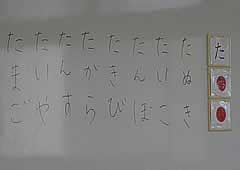 た
たぬき
たいこ
たんぼ
たきび
たから
たんす
たいや
たまご